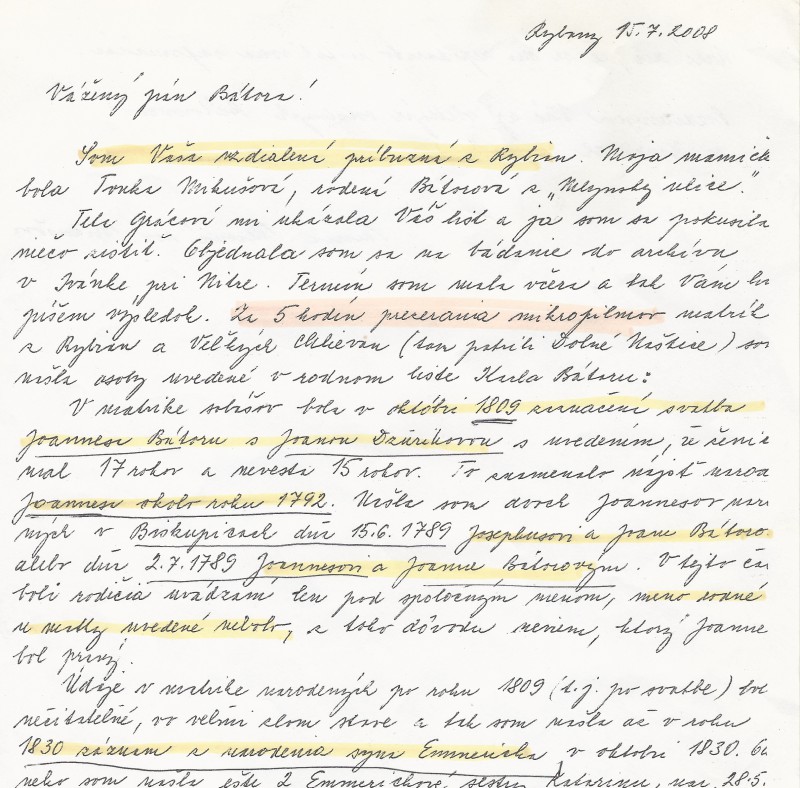 Rybany 15.7.2008
Vážený pán Bátora!
Som Vaša vzdialená príbuzná z Rybian. Moja mamičk
bola Tonka Mikušová, rodená Bátorová z „Mlynskej ulice."
Tela Grácová mi ukázala Váš list a ja som sa pokúsila
niečo zistiť. Objednala som sa na bádanie do archívu
v Ivánke pri Nitre. Termín som mala včera a tak Vám
píšem výsledok. Za 5 hodín prezerania mikrofilmov matrík
z Rybian a Veľkých Chlievan (tam patrili Dolné Naštice) som
našla osoby uvedené v rodnom liste Karla Bátoru:
V matrike sobášov bola v októbri 1809 zaznačená svatba
Joannesa Bátoru s Joanou Dzúrikovou s uvedením, že ženíc
mal 17 rokov a nevesta 15 rokov. To znamenalo nájsť naroda
Joannesa okolo roku 1792. Našla som dvoch Joannesov naro
ných v Biskupicach dňa 15.6.1789 Josephusovi a Joane Bátoro
alebo dňa 2.7.1789 Joannesovi a Joanne Bátorovým. V tejto čas
boli rodičia uvádzaní len pod spoločným menom, meno rodné
u matky uvedené nebolo, z toho dôvodu neviem, ktorý Joanne
bol pravý.
Údaje v matrike narodených po roku 1809 (t.j. po svatbe) bol
nečitateľné, vo veľmi zlom stave a tak som našla až v roku
1830 záznam z narodenia syna Emmericha v októbri 1830.
neho som našla ešte 2 Emmerichové sestry Katarínu, nar. 28.5.